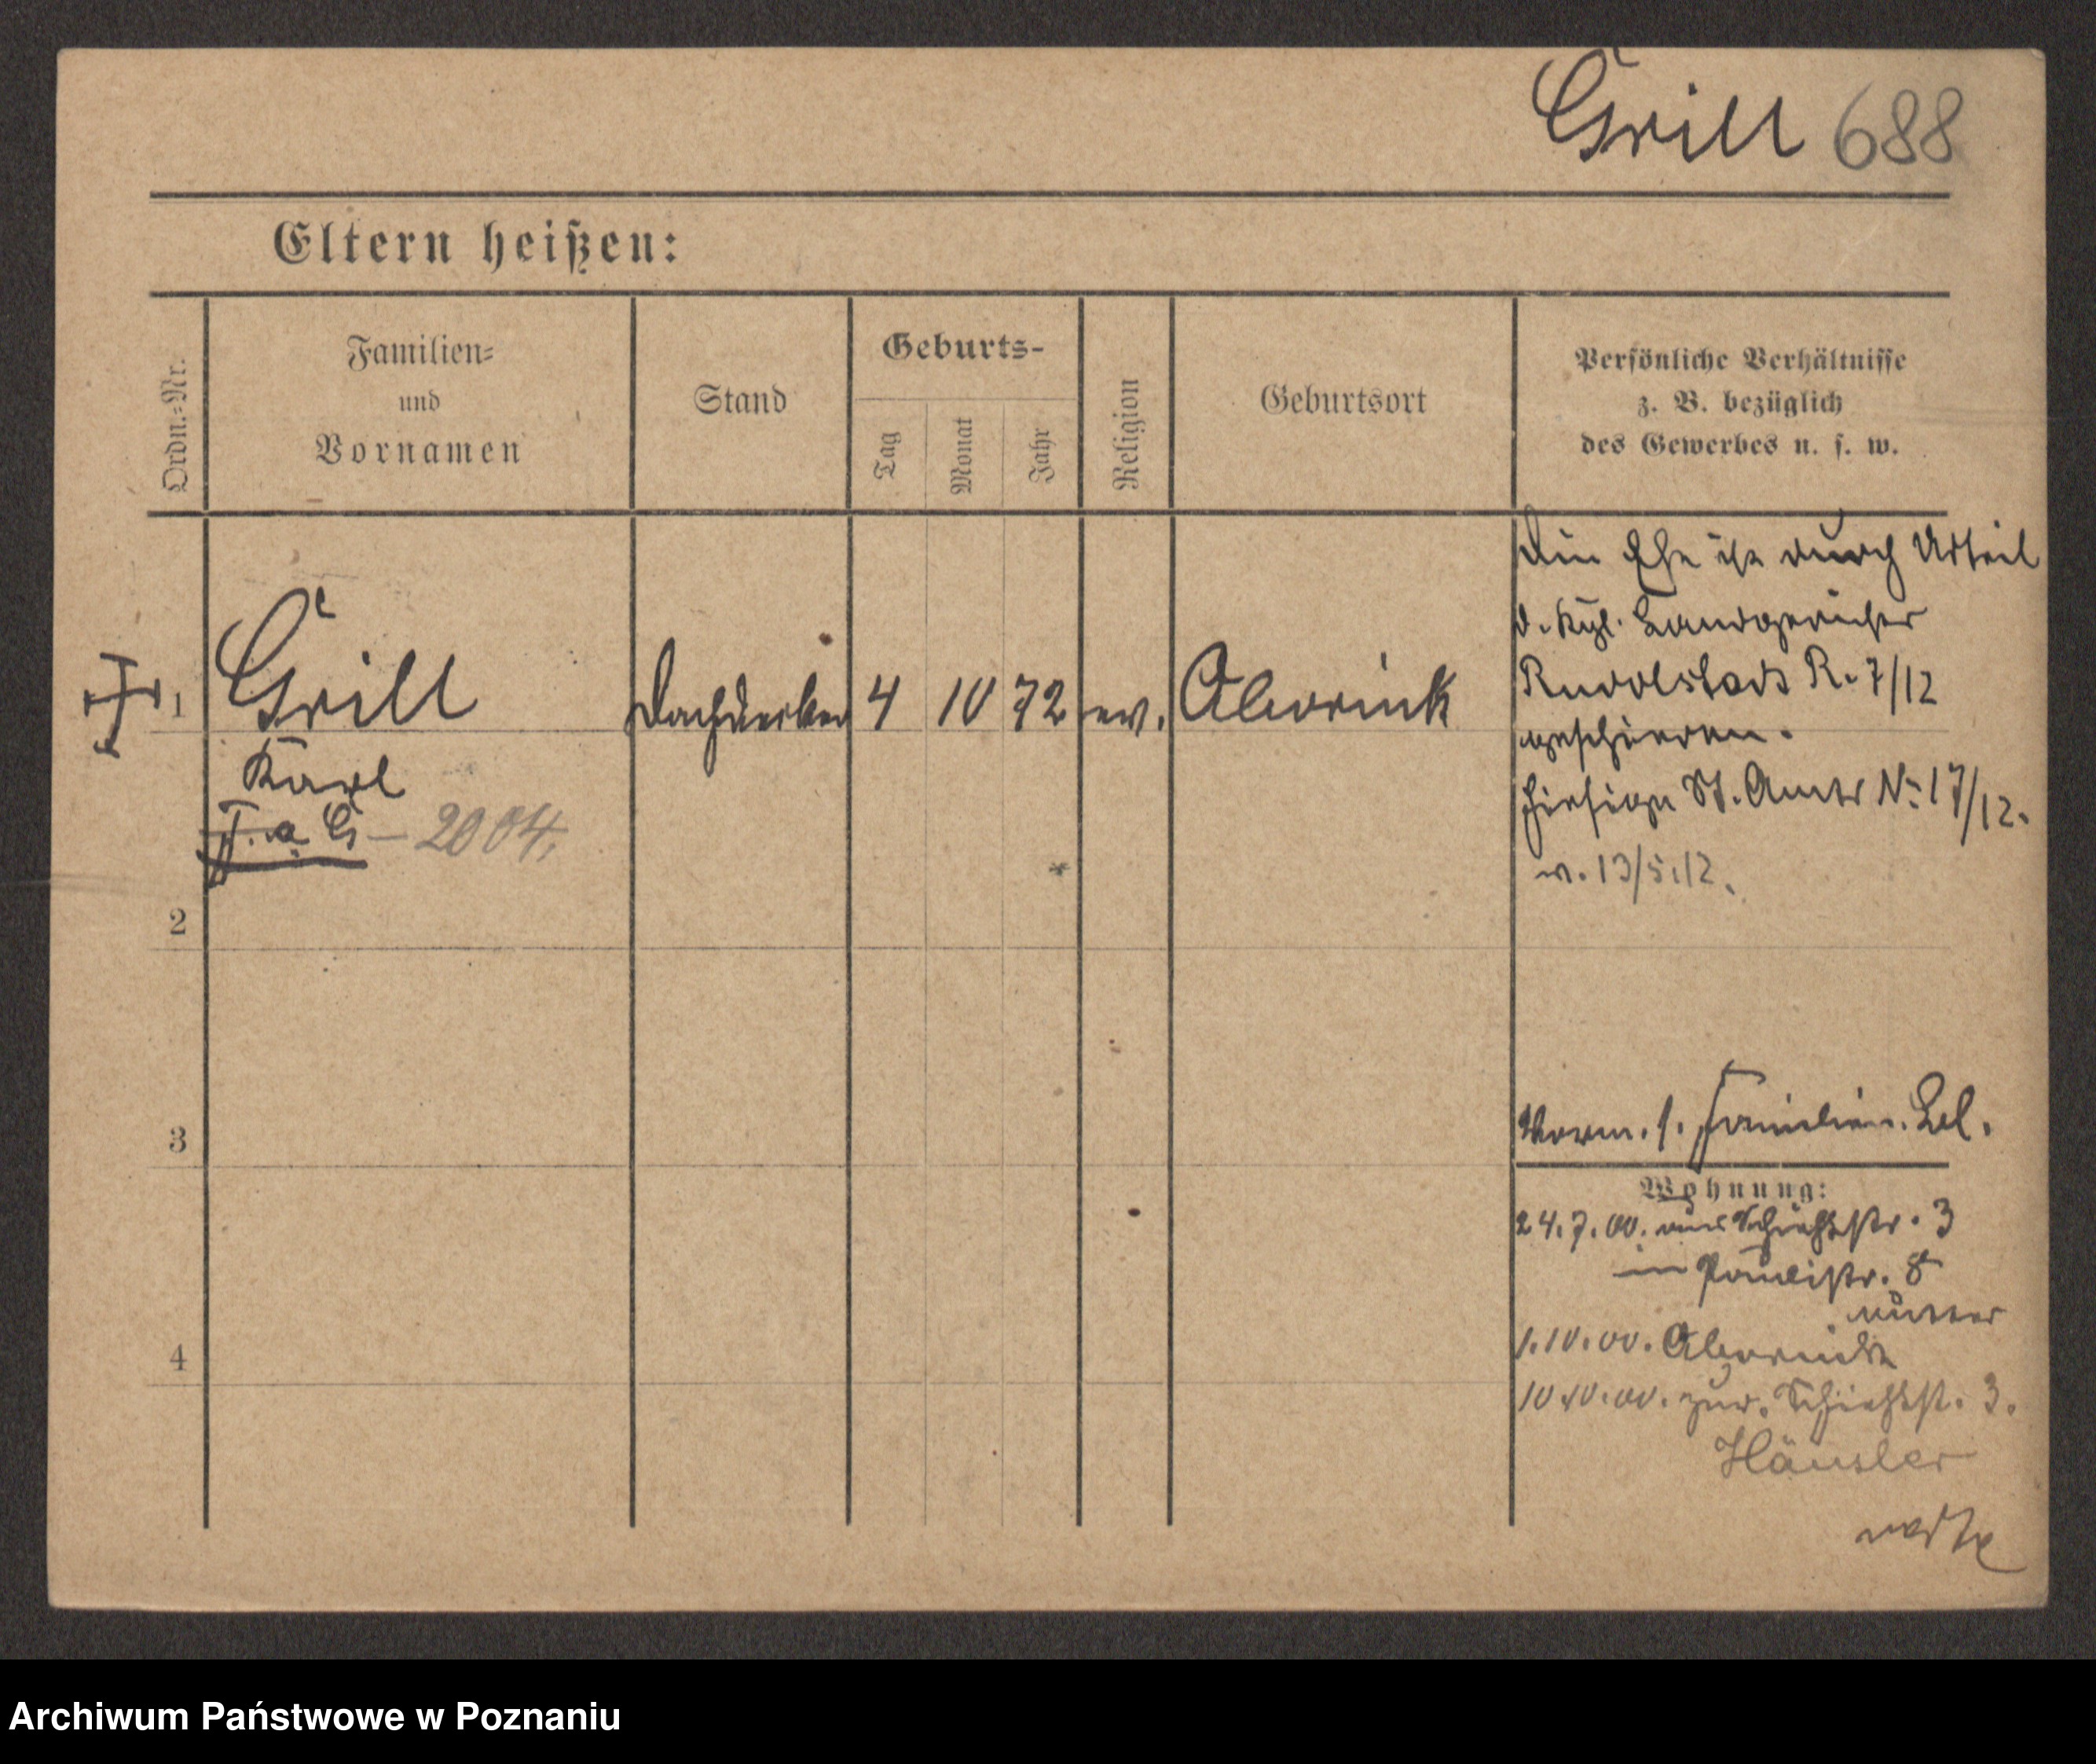 Grill 688
Eltern heißen:
Ordn.=Nr.
Familien=
und
Vornamen
Stand
Geburts-
Tag
Monat
Jahr
Religion
Geburtsort
Persönliche Verhältnisse
z. B. bezüglich
des Gewerbes u. s. w.
Die Ehe ist durch Urteil
d. Kgl. Landgerichts
Rudolstadt R. 7/12
geschieden.
hiesige St. Amts Nr. 17/12.
v. 13/5.12.
1 Grill Dachdecker 4 10 72 ev.
Karl
T. a G – 2004
2
3
Verm. s. Familien. Bl.
Wohnung:
24.7.00. aus Schichtstr. 3
in Paulistr. 8
4
1.10.00.
10.10.00. zur. Schichtst. 3.
Häusler